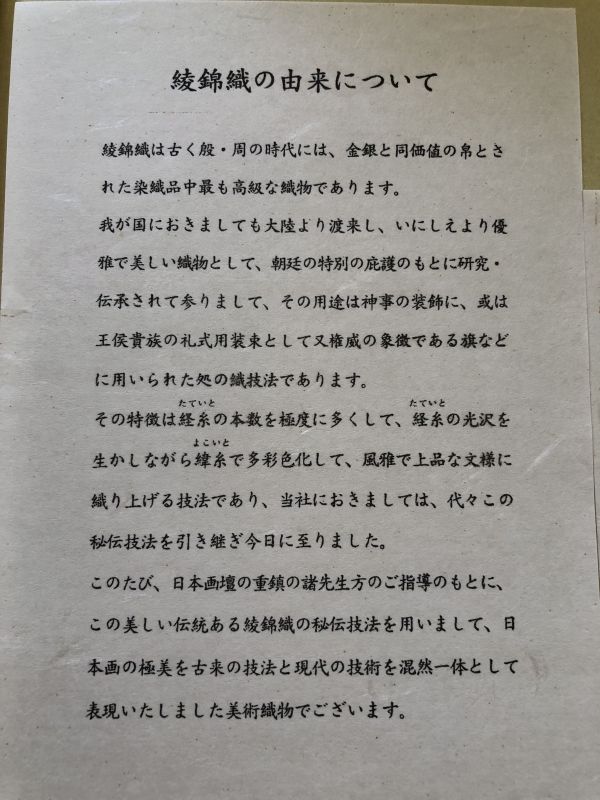 綾錦織の由来について
綾錦織は古く殷・周の時代には、金銀と同価値の帛とさ
れた染織品中最も高級な織物であります。
我が国におきましても大陸より渡来し、いにしえより優
雅で美しい織物として、朝廷の特別の庇護のもとに研究・
伝承されて参りまして、その用途は神事の装飾に、或は
王侯貴族の礼式用装束として又権威の象徴である旗など
に用いられた処の織技法であります。
たていと たていと
その特徴は経糸の本数を極度に多くして、経糸の光沢を
よこいと
生かしながら緯糸で多彩色化して、風雅で上品な文様に
織り上げる技法であり、当社におきましては、代々この
秘伝技法を引き継ぎ今日に至りました。
このたび、日本画壇の重鎮の諸先生方のご指導のもとに、
この美しい伝統ある綾錦織の秘伝技法を用いまして、日
本画の極美を古来の技法と現代の技術を混然一体として
表現いたしました美術織物でございます。